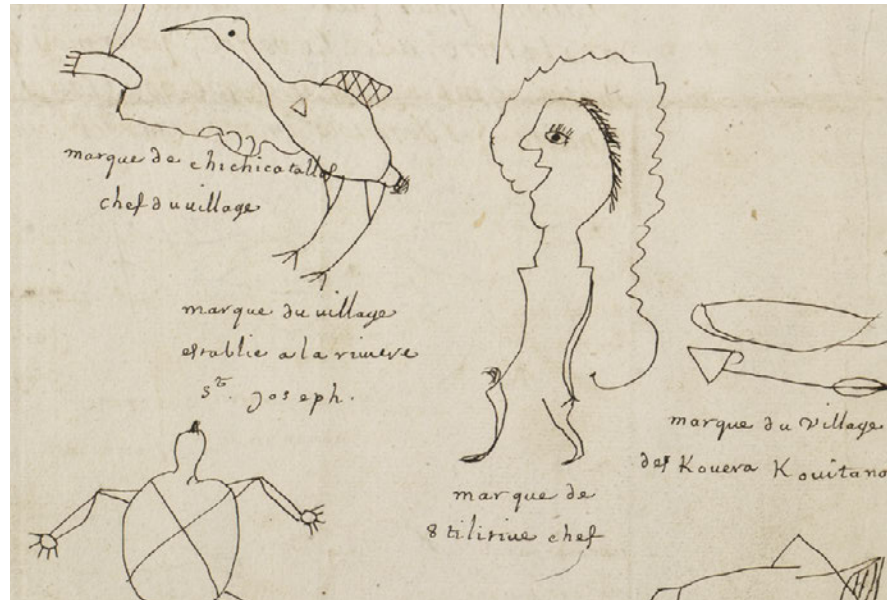 marque de chichicatallo
chef du village
marque du village
establie a la riviere
st. Joseph.
marque de
8tilirine chef
marque du village
des Kouera Kouitano